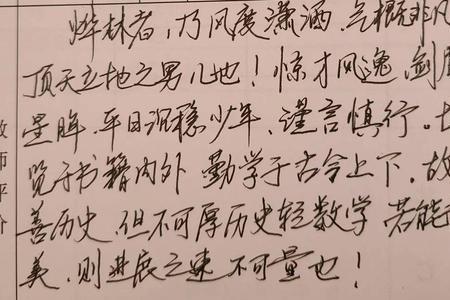 烨林者，乃风度潇洒，气概非凡
顶天立地之男儿也！惊才风逸，剑眉
星眸，平日沉稳少年，谨言慎行。
览于书籍内外，勤学于古今上下，故
善历史，但不可厚历史轻数学，若能
美，则进展之速不可量也！
教师评分